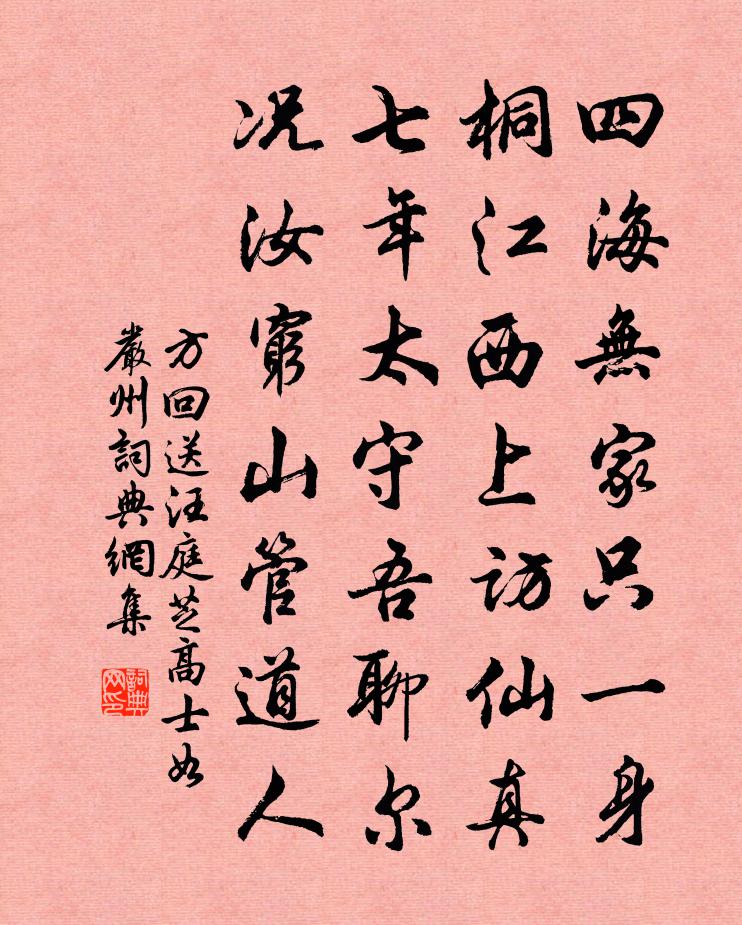 四海無家只一身
桐江西上訪仙真
七年太守吾聊尔
况汝窮山管道人
方回送汪庭芝高士如
嚴州詞典網集
詞典
网印